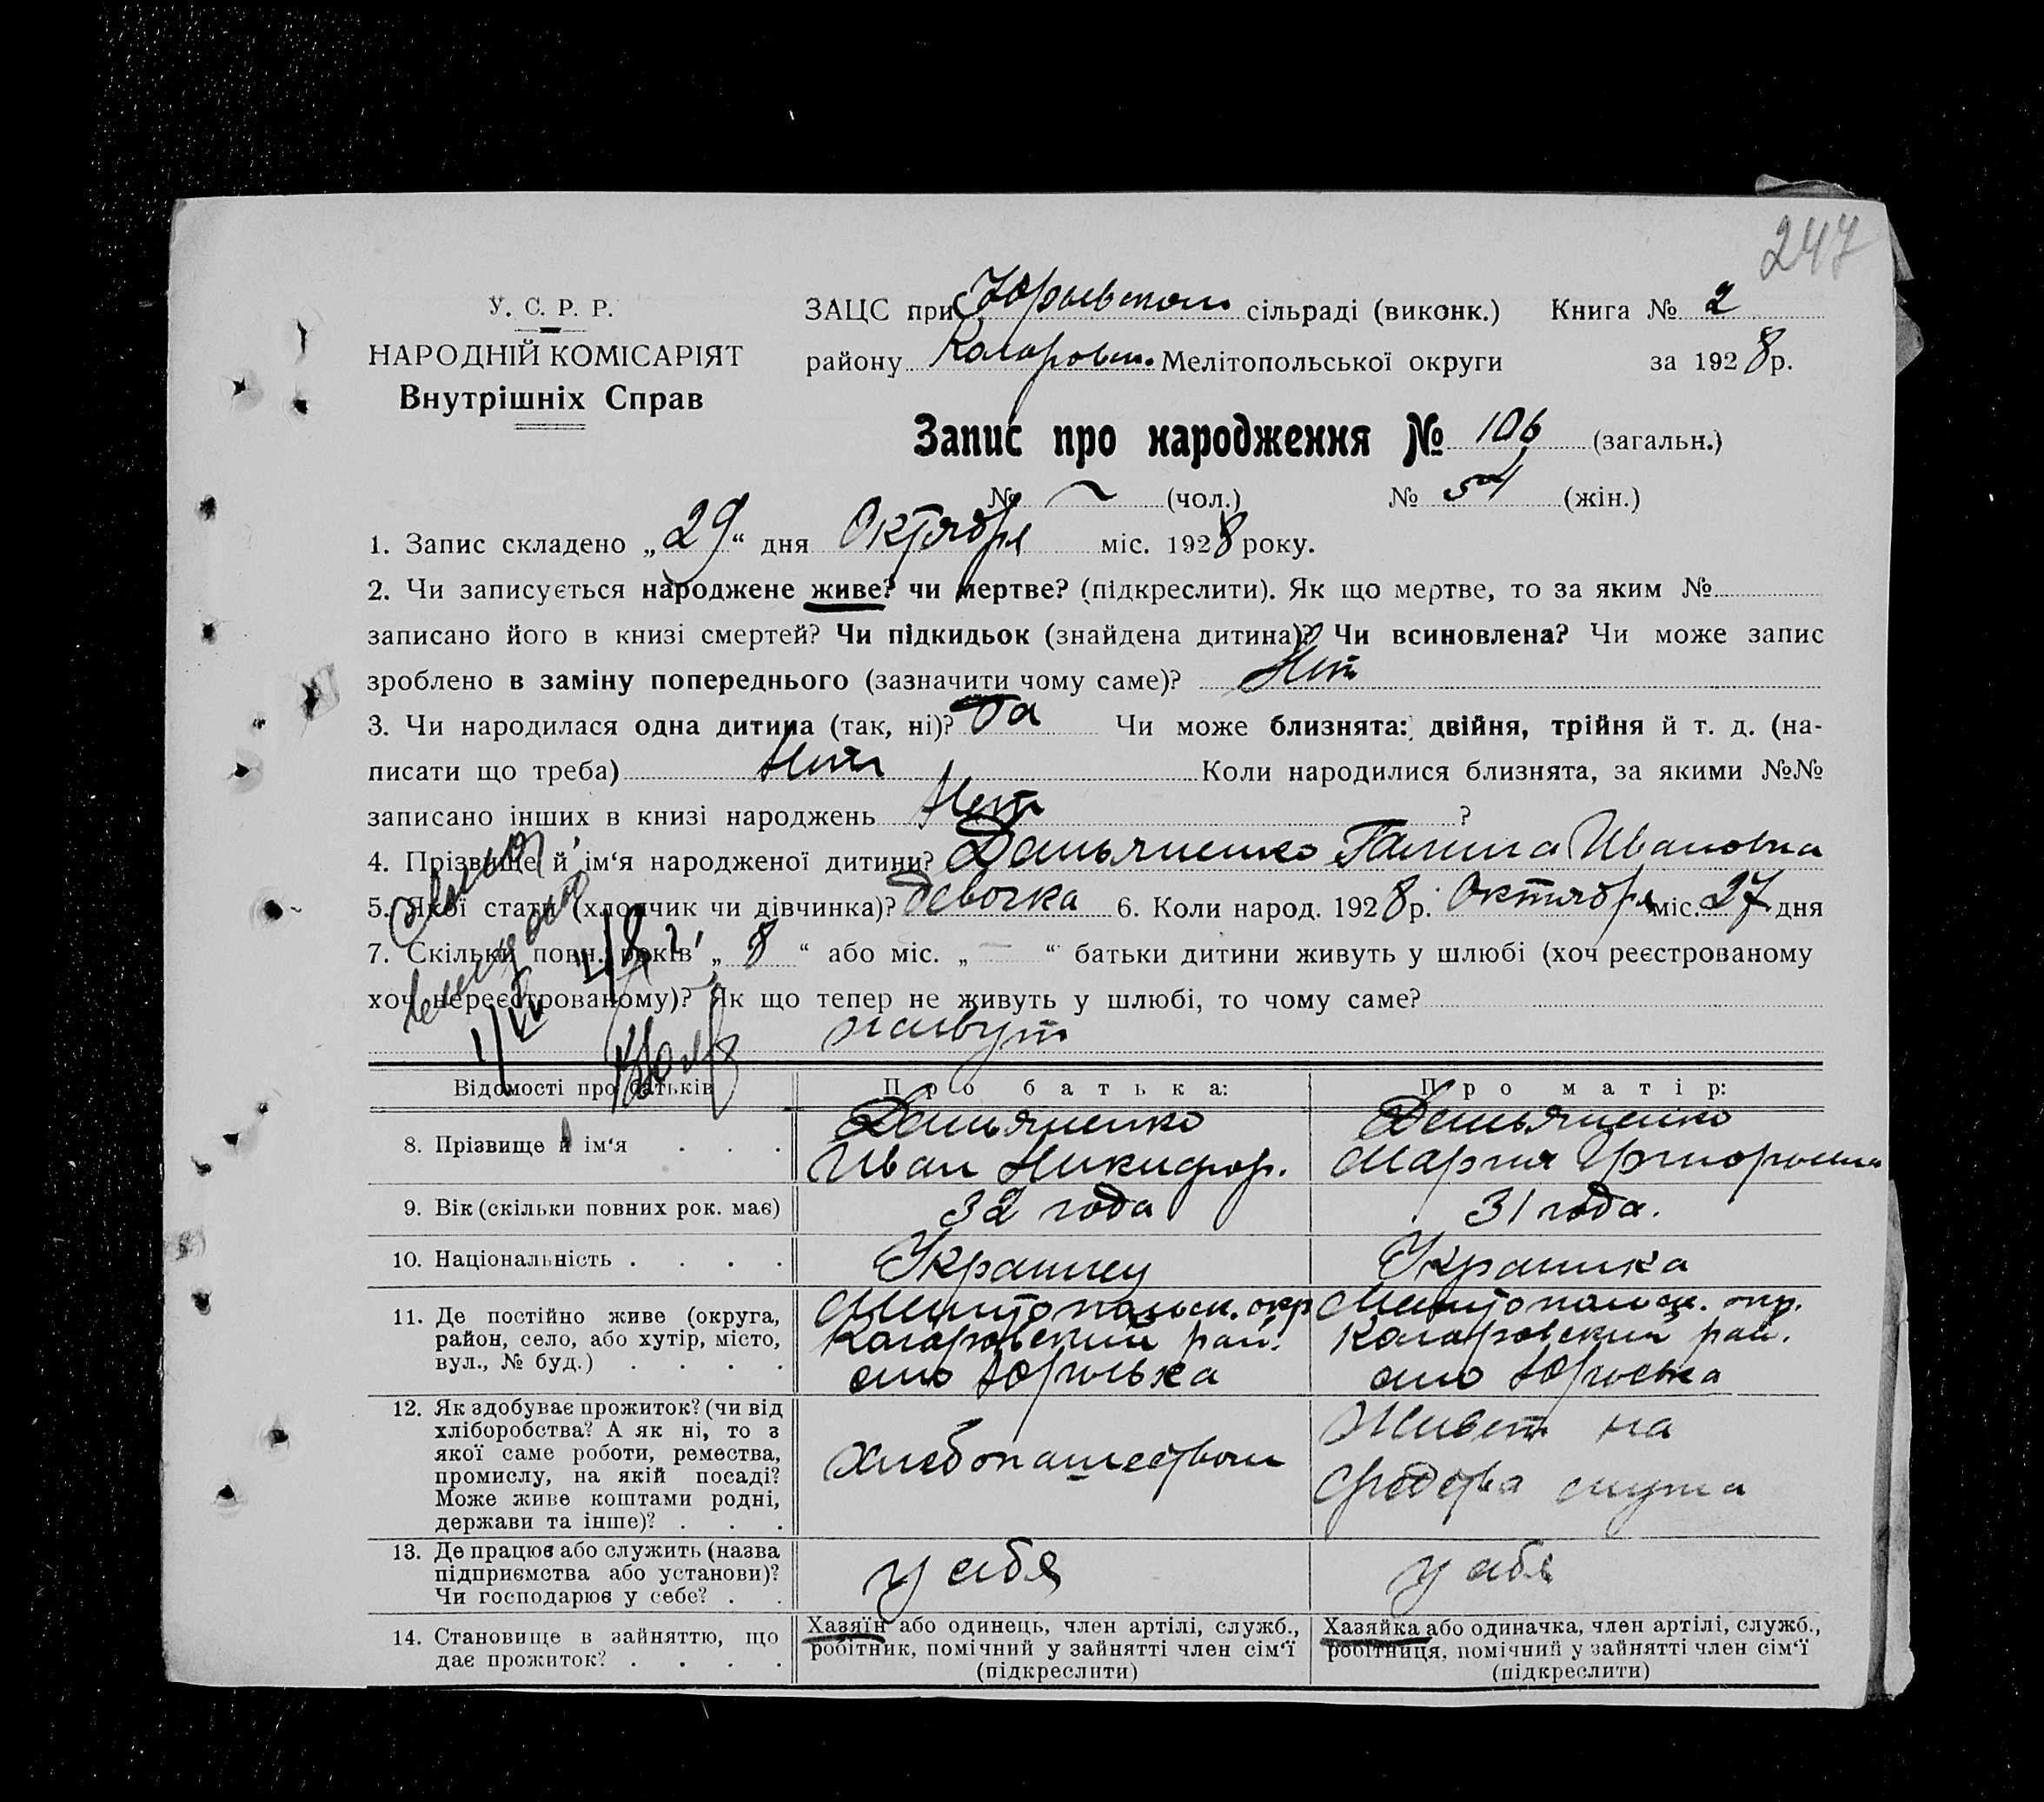 247
У. С. Р. Р.
НАРОДНІЙ КОМІСАРІЯТ
Внутрішніх Справ
ЗАЦС при Юрьевском сільраді (виконк.) Книга № 2
району Коларовск. Мелітопольської округи за 1928 р.
Запис про народження № 106 (загальн.)
№ ~ (чол.) № 54 (жін.)
1. Запис складено „29“ дня Октября міс. 1928 року.
2. Чи записується народжене живе? чи мертве? (підкреслити). Як що мертве, то за яким №
записано його в книзі смертей? Чи підкидьок (знайдена дитина)? Чи всиновлена? Чи може запис
зроблено в заміну попереднього (зазначити чому саме)? Нет
3. Чи народилася одна дитина (так, ні)? Да Чи може близнята: двійня, трійня й т. д. (на-
писати що треба) Нет Коли народилися близнята, за якими №№
записано інших в книзі народжень Нет ?
4. Прізвище й ім‘я народженої дитини? Демьяненко Галина Ивановна
5. Якої стати (хлопчик чи дівчинка)? девочка 6. Коли народ. 1928 р. Октября міс. 27 дня
7. Скільки повн. років „ 8 “ або міс. „ — “ батьки дитини живуть у шлюбі (хоч реєстрованому
хоч нереєстрованому)? Як що тепер не живуть у шлюбі, то чому саме?
живут
Відомості про батьків Про батька: Про матір:
8. Прізвище й ім‘я . . . Демьяненко Иван Никифор. Демьяненко Мария Григорьевна
9. Вік (скільки повних рок. має) 32 года 31 года.
10. Національність . . . . Украинец Украинка
11. Де постійно живе (округа,
район, село, або хутір, місто,
вул., № буд.) . . . .
Мелитопольск. окр
Коларовский рай.
село Юрьевка
Мелитопольск. окр.
Коларовский рай.
село Юрьевка
12. Як здобуває прожиток? (чи від
хліборобства? А як ні, то з
якої саме роботи, ремества,
промислу, на якій посаді?
Може живе коштами родні,
держави та інше)? . . .
Хлебопашеством
Живет на
средства мужа
13. Де працює або служить (назва
підприємства або установи)?
Чи господарює у себе? . .
у себя
у себя
14. Становище в зайняттю, що
дає прожиток? . . . .
Хазяїн або одинець, член артілі, служб.,
робітник, помічний у зайнятті член сім‘ї
(підкреслити)
Хазяйка або одиначка, член артілі, служб.,
робітниця, помічний у зайнятті член сім‘ї
(підкреслити)